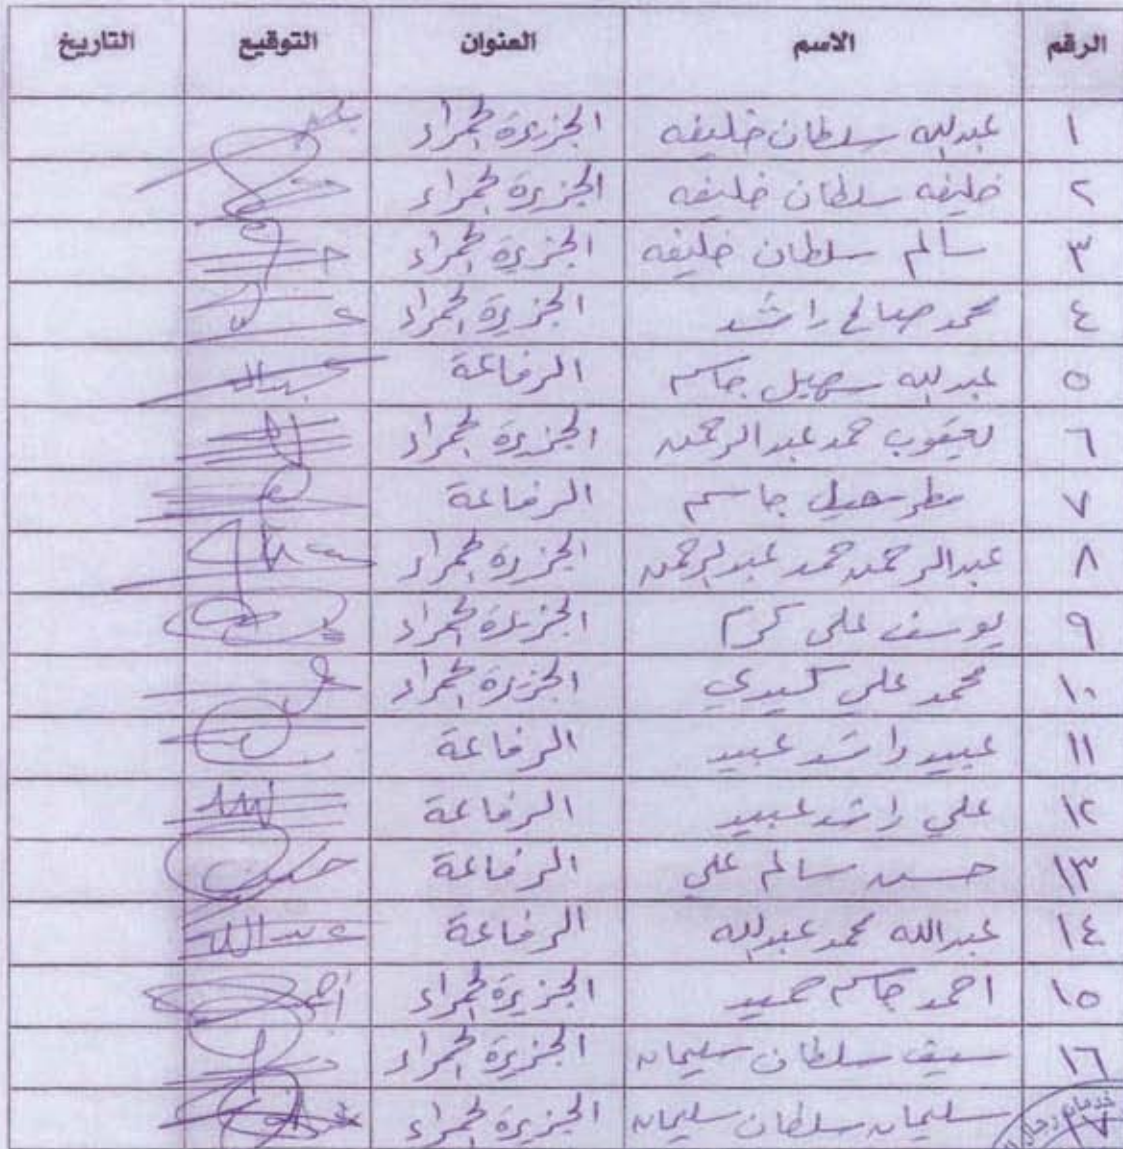 الرقم الاسم العنوان التوقيع التاريخ
١ عبدالله سلطان خليفه الجزيرة الحمراء
٢ خليفه سلطان خليفه الجزيرة الحمراء
٣ سالم سلطان خليفه الجزيرة الحمراء
٤ محمد صالح راشد الجزيرة الحمراء
٥ عبدالله سهيل جاسم الرفاعة عبدالله
٦ يعقوب حمد عبدالرحمن الجزيرة الحمراء
٧ مطر سهيل جاسم الرفاعة
٨ عبدالرحمن حمد عبدالرحمن الجزيرة الحمراء
٩ يوسف علي كرم الجزيرة الحمراء
١٠ محمد علي كبيدي الجزيرة الحمراء
١١ عبيد راشد عبيد الرفاعة
١٢ علي راشد عبيد الرفاعة
١٣ حسن سالم علي الرفاعة
١٤ عبدالله محمد عبدالله الرفاعة عبدالله
١٥ احمد جاسم حميد الجزيرة الحمراء
١٦ سيف سلطان سليمان الجزيرة الحمراء
١٧ سليمان سلطان سليمان الجزيرة الحمراء